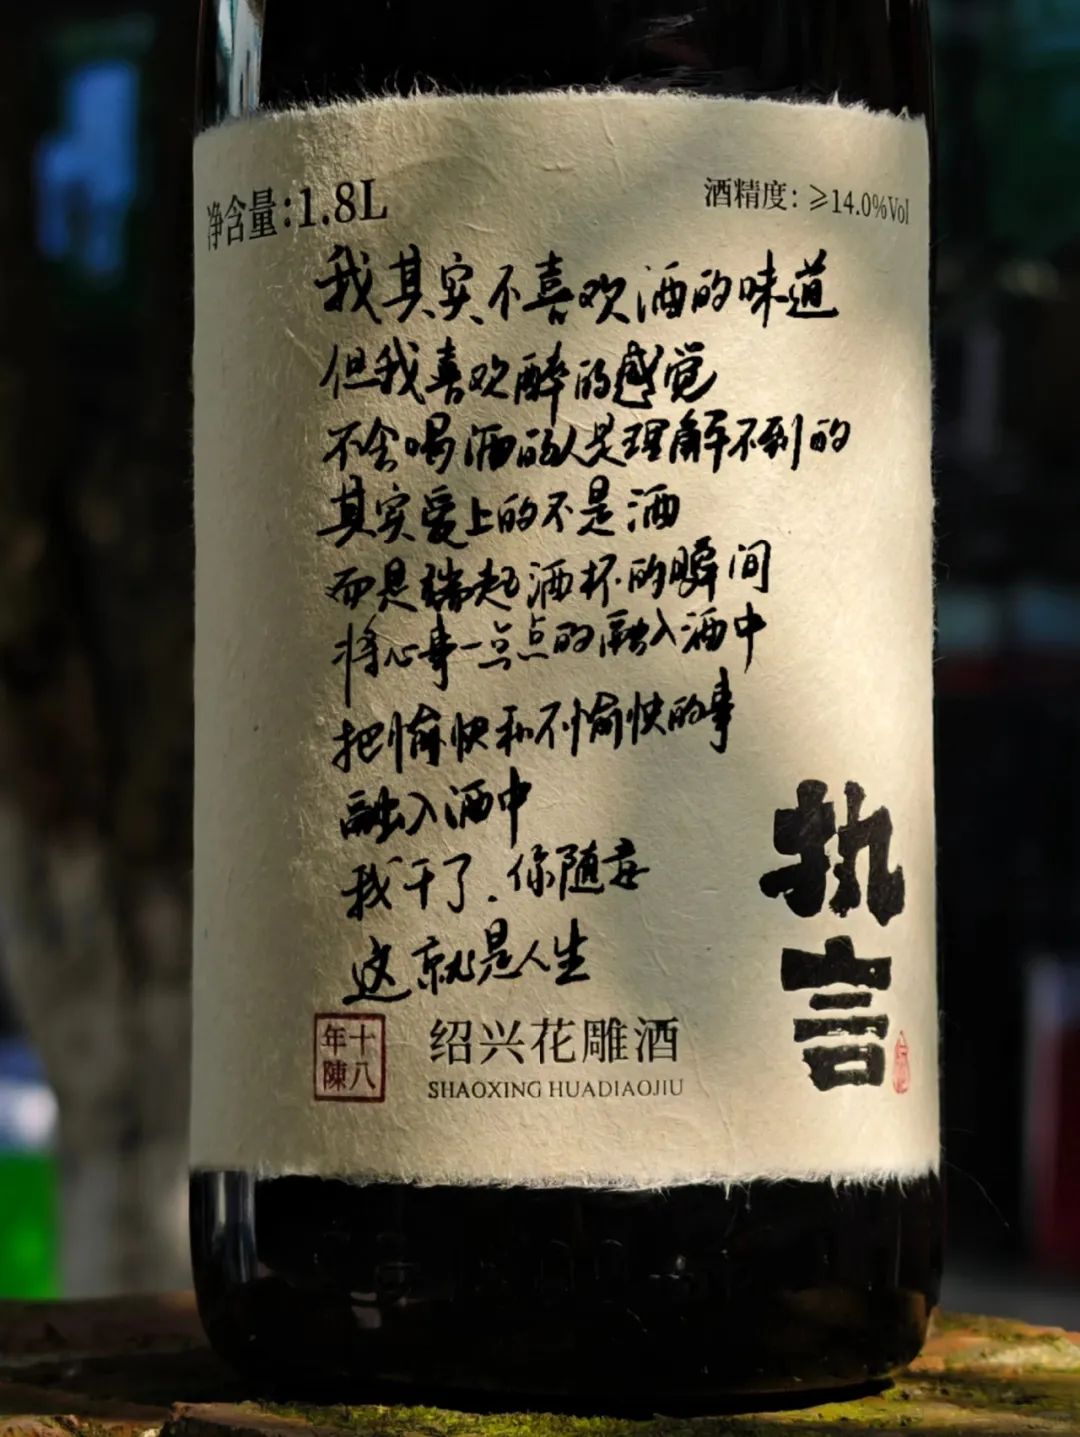 净含量:1.8L
酒精度：≥14.0%Vol
我其实不喜欢酒的味道
但我喜欢醉的感觉
不会喝酒的人是理解不到的
其实爱上的不是酒
而是端起酒杯的瞬间
将心事一点点的融入酒中
把愉快和不愉快的事
融入酒中
我干了.你随意
这就是人生
执言
十八年陳
绍兴花雕酒
SHAOXING HUADIAOJIU